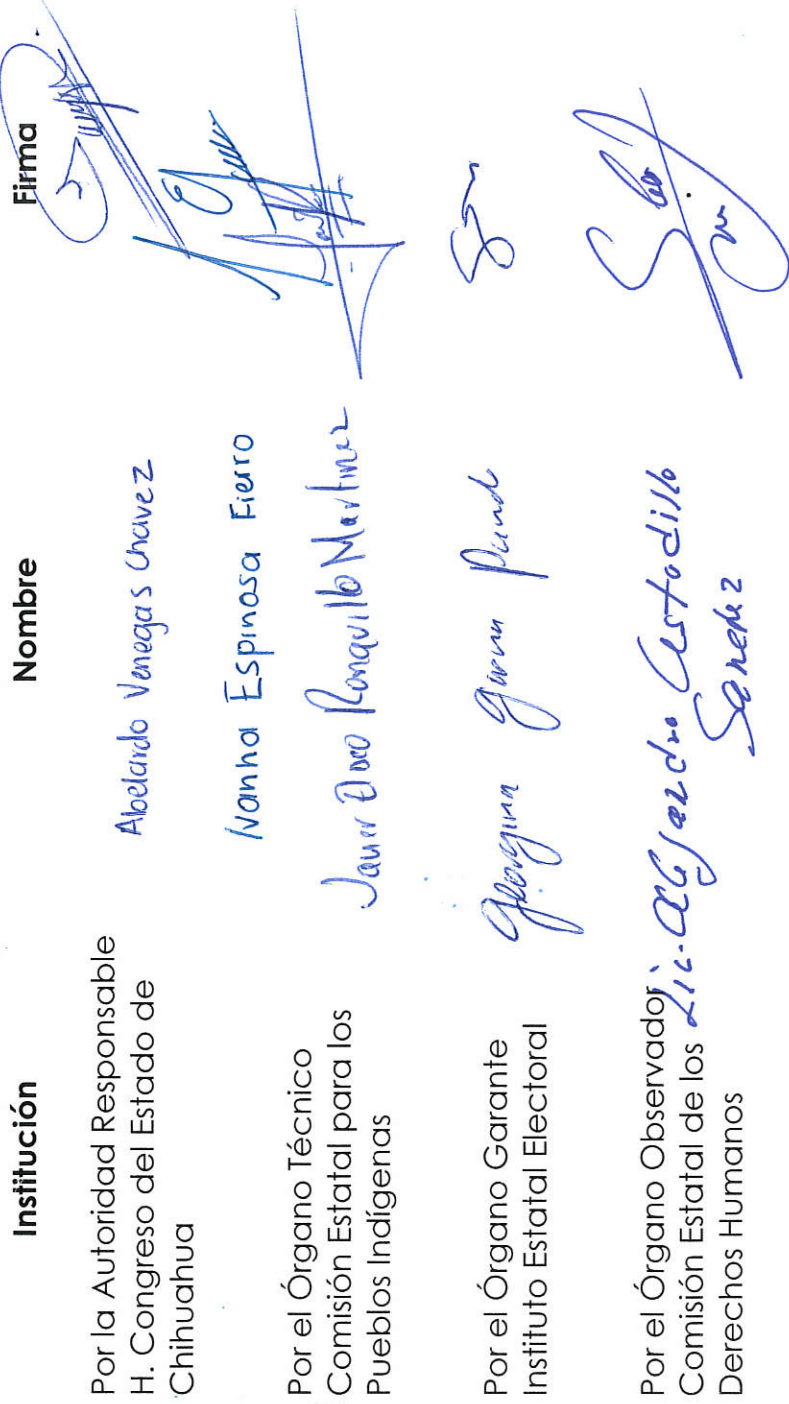 Institución Nombre Firma
Por la Autoridad Responsable
H. Congreso del Estado de
Chihuahua
Abelardo Venegas Chavez
Ivanha Espinosa Fierro
Por el Órgano Técnico
Comisión Estatal para los
Pueblos Indígenas
Javier Ronquillo Martinez
Por el Órgano Garante
Instituto Estatal Electoral
Georgina
Por el Órgano Observador
Comisión Estatal de los
Derechos Humanos
Lic. Alejandro Astudillo
Sanchez